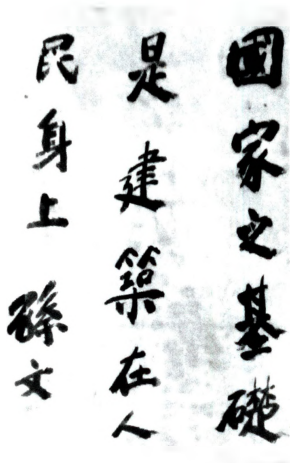 國家之基礎
是建築在人
民身上 孫文